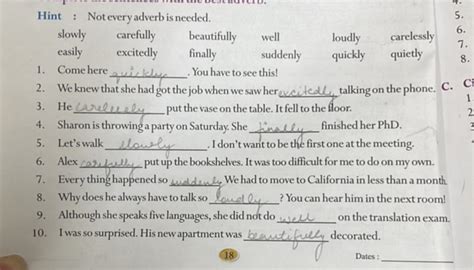 Hint : Not every adverb is needed.
slowly carefully beautifully well loudly carelessly
easily excitedly finally suddenly quickly quietly
1. Come here quickly. You have to see this!
2. We knew that she had got the job when we saw her excitedly talking on the phone.
3. He carelessly put the vase on the table. It fell to the floor.
4. Sharon is throwing a party on Saturday. She finally finished her PhD.
5. Let's walk slowly. I don't want to be the first one at the meeting.
6. Alex carefully put up the bookshelves. It was too difficult for me to do on my own.
7. Every thing happened so suddenly We had to move to California in less than a month.
8. Why does he always have to talk so loudly? You can hear him in the next room!
9. Although she speaks five languages, she did not do well on the translation exam.
10. I was so surprised. His new apartment was beautifully decorated.
18 Dates :
5.
6.
7.
8.
C.
2